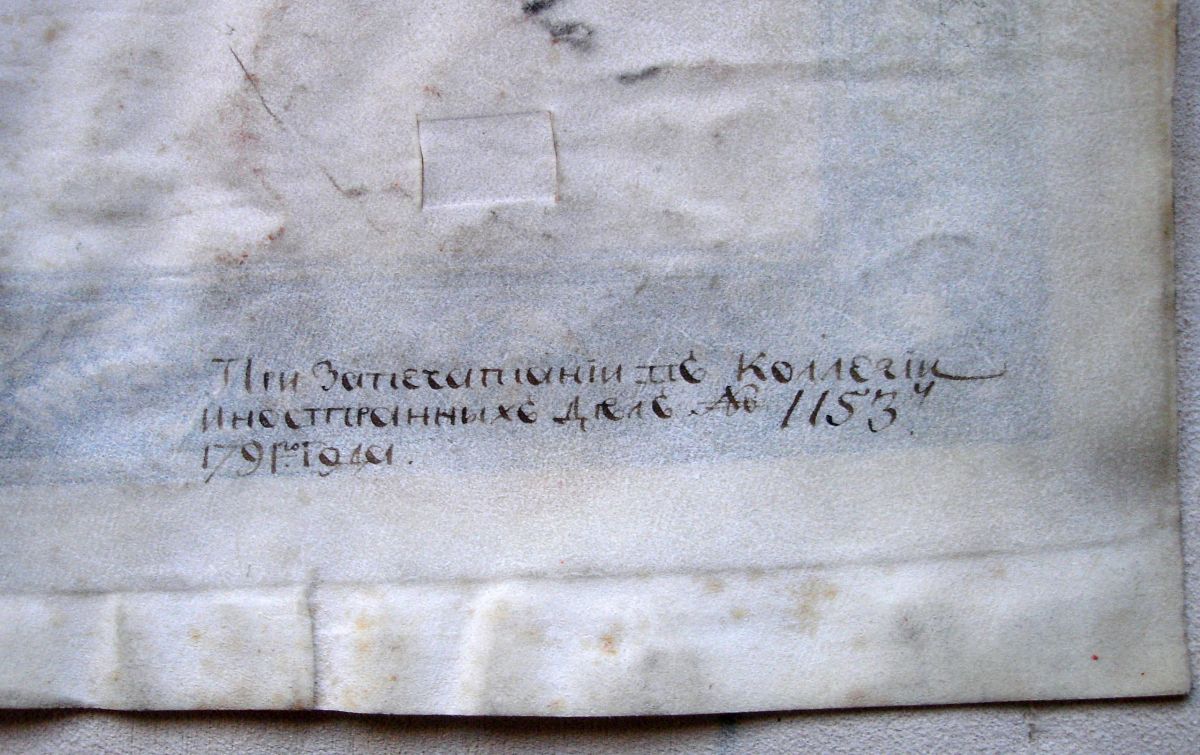 При Запечатанiи въ Коллегiи
иностранныхъ делъ № 1153й
1791го года.